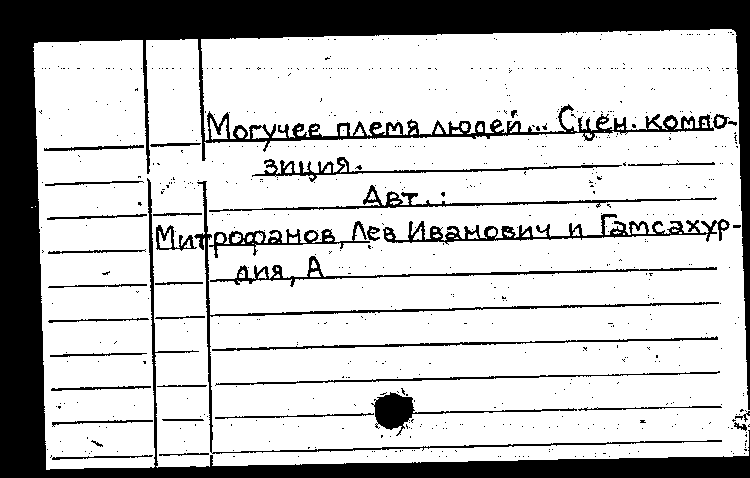 Могучее племя людей... Сцен. компо-
зиция.
Авт.:
Митрофанов, Лев Иванович и Гамсахур-
дия, А